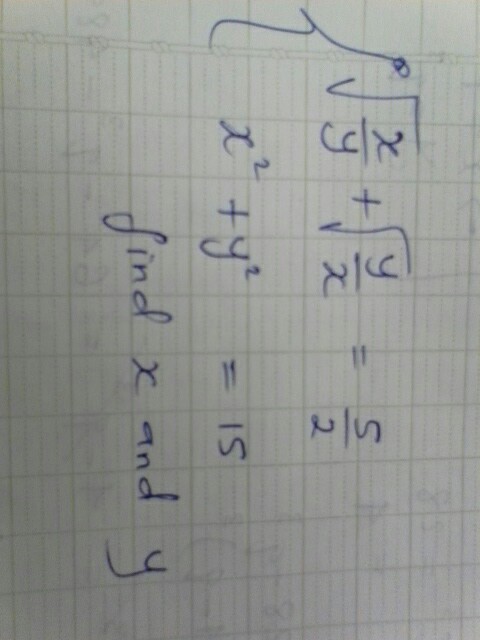 √(x/y) + √(y/x) = 5/2
x² + y² = 15
find x and y